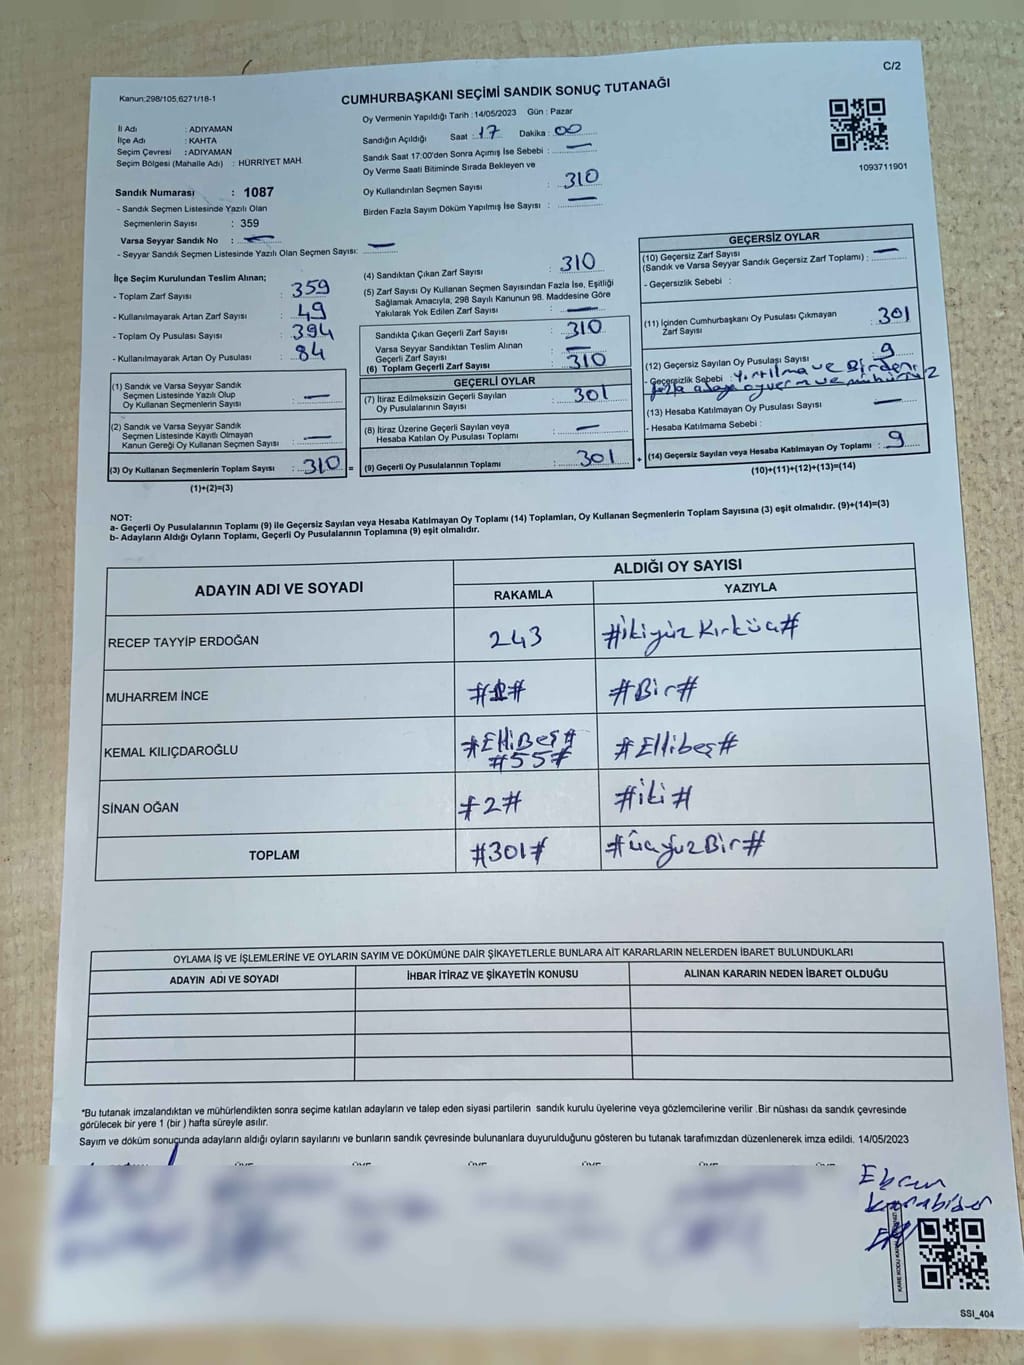 C/2
Kanun:298/105,6271/18-1
CUMHURBAŞKANI SEÇİMİ SANDIK SONUÇ TUTANAĞI
Oy Vermenin Yapıldığı Tarih : 14/05/2023 Gün : Pazar
İl Adı : ADIYAMAN
İlçe Adı : KAHTA
Seçim Çevresi : ADIYAMAN
Seçim Bölgesi (Mahalle Adı) : HÜRRİYET MAH.
Sandık Numarası : 1087
- Sandık Seçmen Listesinde Yazılı Olan
Seçmenlerin Sayısı : 359
Varsa Seyyar Sandık No : —
- Seyyar Sandık Seçmen Listesinde Yazılı Olan Seçmen Sayısı: —
Sandığın Açıldığı Saat : 17 Dakika : 00
Sandık Saat 17:00'den Sonra Açımış İse Sebebi : —
Oy Verme Saati Bitiminde Sırada Bekleyen ve
Oy Kullandırılan Seçmen Sayısı : 310
Birden Fazla Sayım Döküm Yapılmış İse Sayısı : —
1093711901
İlçe Seçim Kurulundan Teslim Alınan;
- Toplam Zarf Sayısı : 359
- Kullanılmayarak Artan Zarf Sayısı : 49
- Toplam Oy Pusulası Sayısı : 394
- Kullanılmayarak Artan Oy Pusulası : 84
(1) Sandık ve Varsa Seyyar Sandık
Seçmen Listesinde Yazılı Olup
Oy Kullanan Seçmenlerin Sayısı : —
(2) Sandık ve Varsa Seyyar Sandık
Seçmen Listesinde Kayıtlı Olmayan
Kanun Gereği Oy Kullanan Seçmen Sayısı : —
(3) Oy Kullanan Seçmenlerin Toplam Sayısı : 310 =
(1)+(2)=(3)
(4) Sandıktan Çıkan Zarf Sayısı : 310
(5) Zarf Sayısı Oy Kullanan Seçmen Sayısından Fazla İse, Eşitliği
Sağlamak Amacıyla, 298 Sayılı Kanunun 98. Maddesine Göre
Yakılarak Yok Edilen Zarf Sayısı : —
Sandıkta Çıkan Geçerli Zarf Sayısı : 310
Varsa Seyyar Sandıktan Teslim Alınan
Geçerli Zarf Sayısı : —
(6) Toplam Geçerli Zarf Sayısı : 310
GEÇERLİ OYLAR
(7) İtiraz Edilmeksizin Geçerli Sayılan
Oy Pusulalarının Sayısı : 301
(8) İtiraz Üzerine Geçerli Sayılan veya
Hesaba Katılan Oy Pusulası Toplamı : —
(9) Geçerli Oy Pusulalarının Toplamı : 301 +
GEÇERSİZ OYLAR
(10) Geçersiz Zarf Sayısı
(Sandık ve Varsa Seyyar Sandık Geçersiz Zarf Toplamı) : —
- Geçersizlik Sebebi :
(11) İçinden Cumhurbaşkanı Oy Pusulası Çıkmayan
Zarf Sayısı : 301
(12) Geçersiz Sayılan Oy Pusulası Sayısı : 9
- Geçersizlik Sebebi : Yırtılma ve Birden
fazla adaya oy verme ve mühürsüz
(13) Hesaba Katılmayan Oy Pusulası Sayısı : —
- Hesaba Katılmama Sebebi :
(14) Geçersiz Sayılan veya Hesaba Katılmayan Oy Toplamı : 9
(10)+(11)+(12)+(13)=(14)
NOT:
a- Geçerli Oy Pusulalarının Toplamı (9) ile Geçersiz Sayılan veya Hesaba Katılmayan Oy Toplamı (14) Toplamları, Oy Kullanan Seçmenlerin Toplam Sayısına (3) eşit olmalıdır. (9)+(14)=(3)
b- Adayların Aldığı Oyların Toplamı, Geçerli Oy Pusulalarının Toplamına (9) eşit olmalıdır.
ADAYIN ADI VE SOYADI ALDIĞI OY SAYISI
RAKAMLA YAZIYLA
RECEP TAYYİP ERDOĞAN 243 #ikiyüz Kırküç#
MUHARREM İNCE #1# #Bir#
KEMAL KILIÇDAROĞLU #ElliBeş# #55# #Ellibeş#
SİNAN OĞAN #2# #iki#
TOPLAM #301# #üçyüzBir#
OYLAMA İŞ VE İŞLEMLERİNE VE OYLARIN SAYIM VE DÖKÜMÜNE DAİR ŞİKAYETLERLE BUNLARA AİT KARARLARIN NELERDEN İBARET BULUNDUKLARI
ADAYIN ADI VE SOYADI İHBAR İTİRAZ VE ŞİKAYETİN KONUSU ALINAN KARARIN NEDEN İBARET OLDUĞU
*Bu tutanak imzalandıktan ve mühürlendikten sonra seçime katılan adayların ve talep eden siyasi partilerin sandık kurulu üyelerine veya gözlemcilerine verilir .Bir nüshası da sandık çevresinde
görülecek bir yere 1 (bir ) hafta süreyle asılır.
Sayım ve döküm sonucunda adayların aldığı oyların sayılarını ve bunların sandık çevresinde bulunanlara duyurulduğunu gösteren bu tutanak tarafımızdan düzenlenerek imza edildi. 14/05/2023
SSI_404